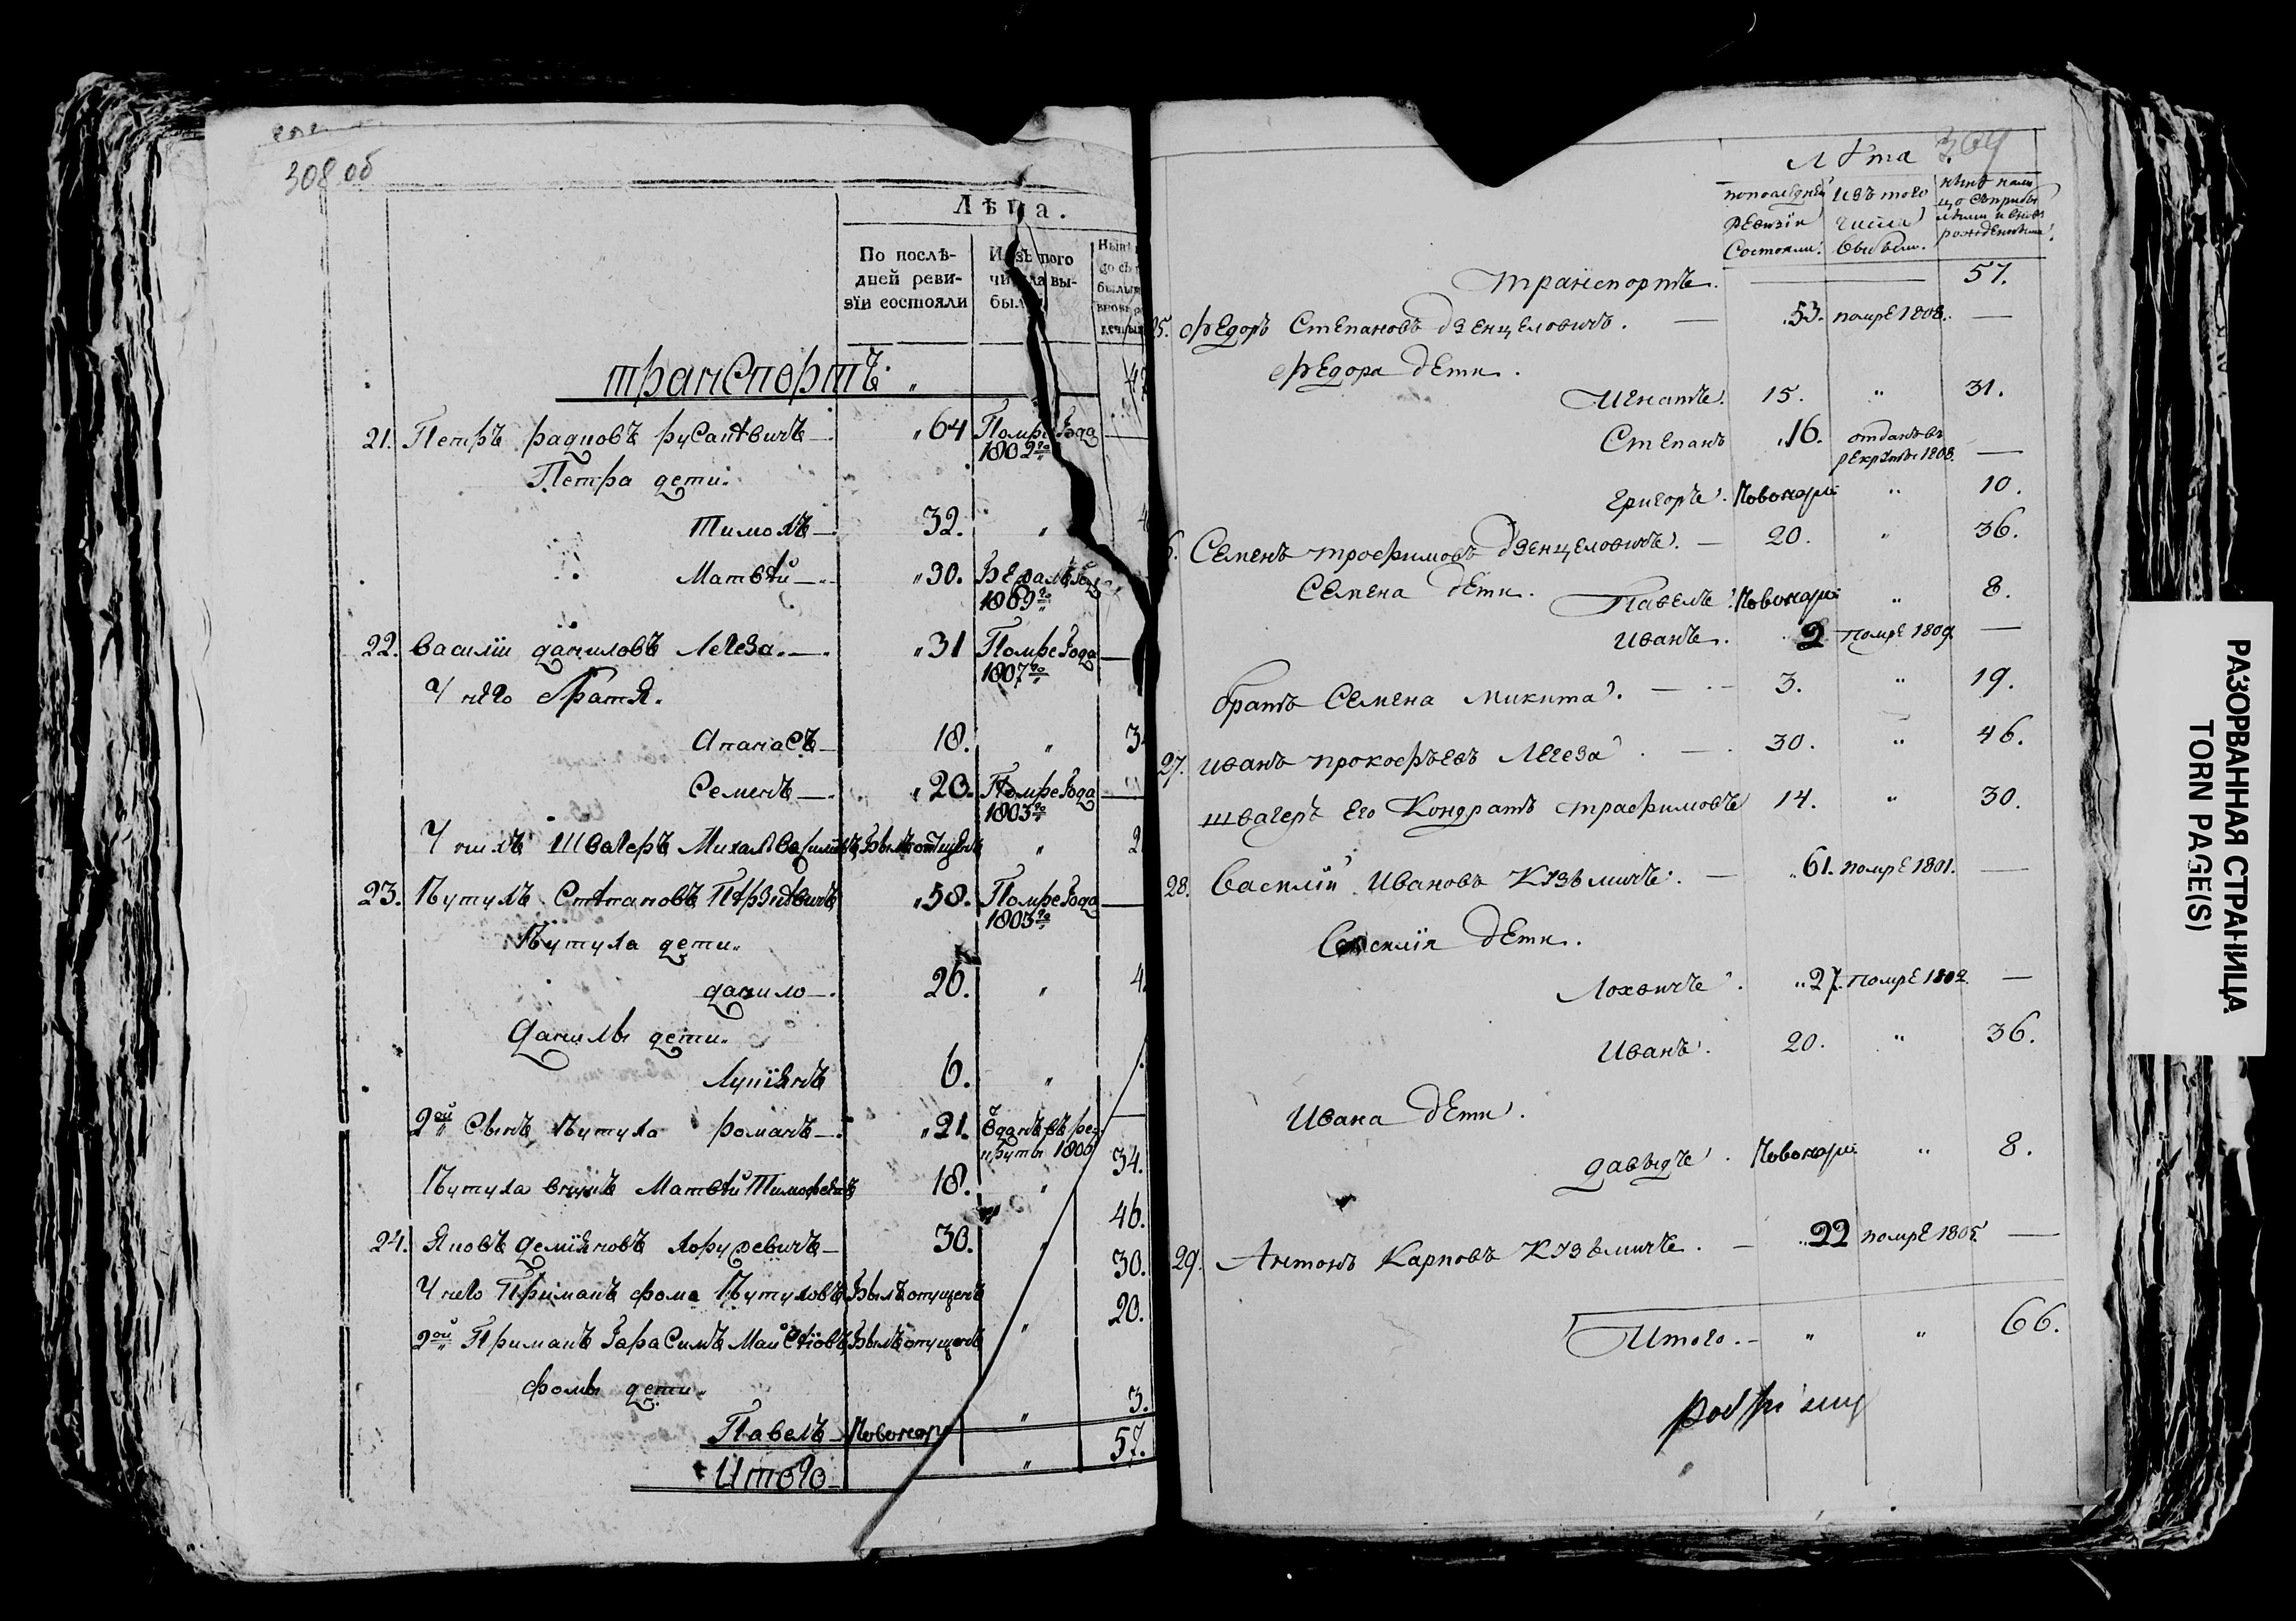 308 об
Лѣта.
По послѣ-
дней реви-
зїи состояли
Изъ того
числа вы-
были
транспортъ. "
21. Петръ радновъ русаѣвичъ — "64 Помре года
1802го
Петра дети.
Тимохъ — 32. "
Матвѣй — "30. Бежалъ года
1809го
22. Василiи даниловъ Легеза. — "31 Помре года —
1807го
У него братя.
Апанасъ — 18. "
Семенъ — "20. Помре года —
1803го
У нихъ Швагеръ Михалъ Былъ "
23. Кутулъ Степановъ "58. Помре года —
1803го
Кутула дети.
данило — 26. "
Данилы дети.
Лупїянъ 6. "
2ой Сынъ Кутула романъ — "21. —
Кутула внукъ Матвѣй 18. " 34.
24. Яковъ демїяновъ 30. " 46.
У него Приманъ фома Кутуловъ Былъ опущенъ 30.
2ой Приманъ Гарасимъ Былъ опущенъ " 20.
фомы дети.
Павелъ — Новонар " 3.
Итого — " 57.
309
Лѣта
попоследнѣй
ревизїи
Состояли.
изъ того
числа
выбыли.
транспортъ. — 57.
25. Федоръ Степановъ дзенцеловичъ. — "53. помрЕ 1808. —
Федора дети.
Игнатъ. 15. " 31.
Степанъ "16. отданъ въ
рекруты 1808. —
Григоръ. Новонарж " 10.
6. Семенъ трофимовъ дзенцеловичъ. — 20. " 36.
Семена дети. Павелъ. Новонарж " 8.
Иванъ. 2 помрЕ 1809. —
братъ Семена Микита. — 3. " 19.
27. иванъ прокофъевъ Легеза. — 30. " 46.
швагеръ Его Кондратъ трафимовъ 14. " 30.
28. Василiй Ивановъ Кузьмичъ. — "61. помрЕ 1801. —
Василiя дети.
"27. помрЕ 1802. —
Иванъ. 20. " 36.
Ивана дети.
давыдъ. Новонарж " 8.
29. Антонъ Карповъ Кузьмичъ. — "22 помрЕ 1805. —
Итого. — " " 66.
РАЗОРВАННАЯ СТРАНИЦА
TORN PAGE(S)